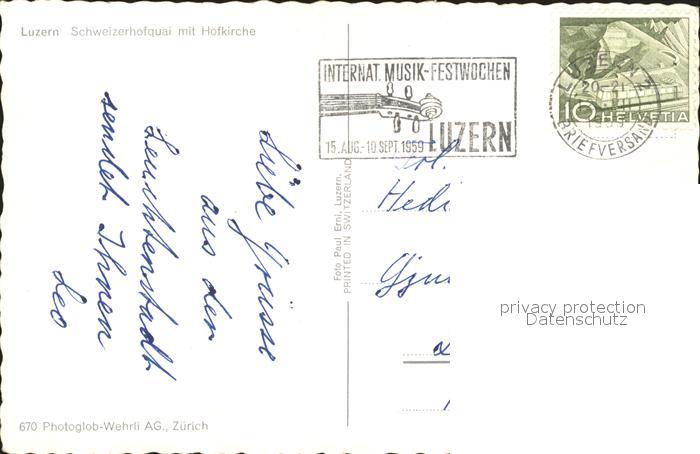 Luzern Schweizerhofquai mit Hofkirche
INTERNAT. MUSIK-FESTWOCHEN
15. AUG.-10 SEPT. 1959 LUZERN
LUZERN 2
20-21
BRIEFVERSAND
10 HELVETIA
Liebe Grüsse
aus der
Leuchtenstadt
sendet Ihnen
Leo
Foto Paul Erni, Luzern.
PRINTED IN SWITZERLAND
Hedi
privacy protection
Datenschutz
670 Photoglob-Wehrli AG., Zürich